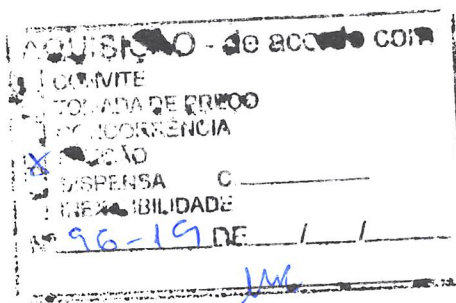 AQUISIÇÃO - de acordo com
CONVITE
TOMADA DE PREÇO
CONCORRÊNCIA
X
DISPENSA C.
INEXIGIBILIDADE
Nº 96-19 DE / /